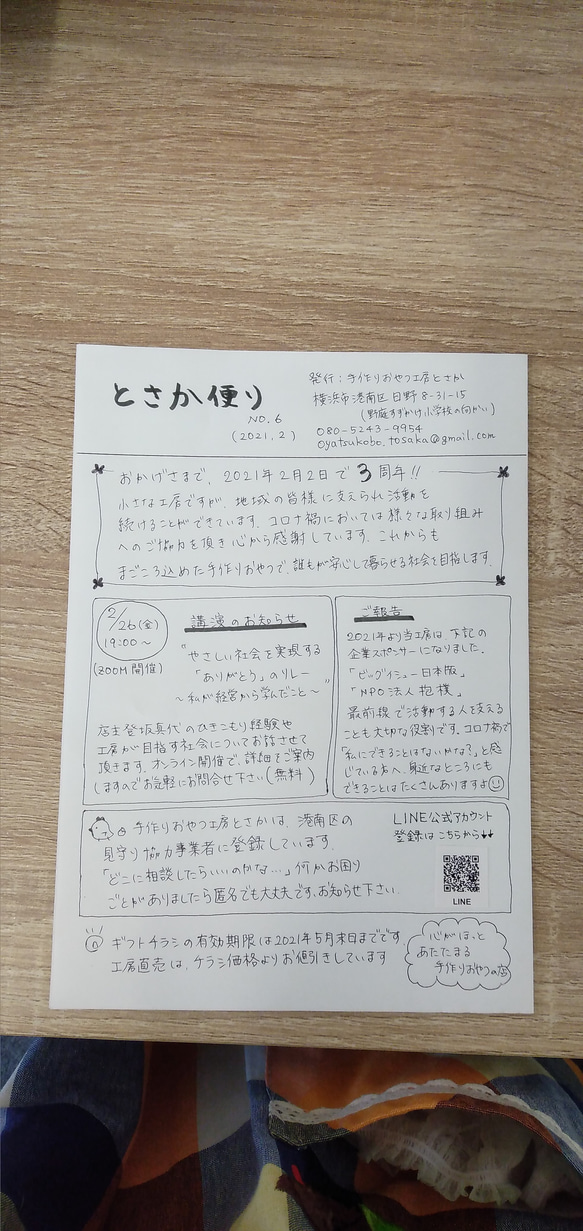 とさか便り
NO.6
(2021.2)
発行：手作りおやつ工房とさか
横浜市港南区日野8-31-15
(野庭すずかけ小学校の向かい)
080-5243-9954
oyatsukobo.tosaka@gmail.com
おかげさまで、2021年2月2日で3周年!!
小さな工房ですが、地域の皆様に支えられ活動を
続けることができています。コロナ禍においては様々な取り組み
へのご協力を頂き心から感謝しています。これからも
まごころ込めた手作りおやつで、誰もが安心して暮らせる社会を目指します。
2/26(金)
19:00～
(ZOOM開催)
講演のお知らせ
"やさしい社会を実現する
「ありがとう」のリレー
～私が経営から学んだこと～"
店主登坂真代のひきこもり経験や
工房が目指す社会についてお話させて
頂きます。オンライン開催で、詳細をご案内
しますのでお気軽にお問合せ下さい(無料)
ご報告
2021年より当工房は、下記の
企業スポンサーになりました。
「ビッグイシュー日本版」
「NPO法人抱樸」
最前線で活動する人を支える
ことも大切な役割です。コロナ禍で
「私にできることはないかな?」と感
じている方へ、身近なところにも
できることはたくさんありますよ
手作りおやつ工房とさかは、港南区の
見守り協力事業者に登録しています。
「どこに相談したらいいのかな…」何かお困り
ごとがありましたら匿名でも大丈夫です、お知らせ下さい。
LINE公式アカウント
登録はこちらから↓↓
LINE
ギフトチラシの有効期限は2021年5月末日までです
工房直売は、チラシ価格よりお値引きしています
心がほっと
あたたまる
手作りおやつの店